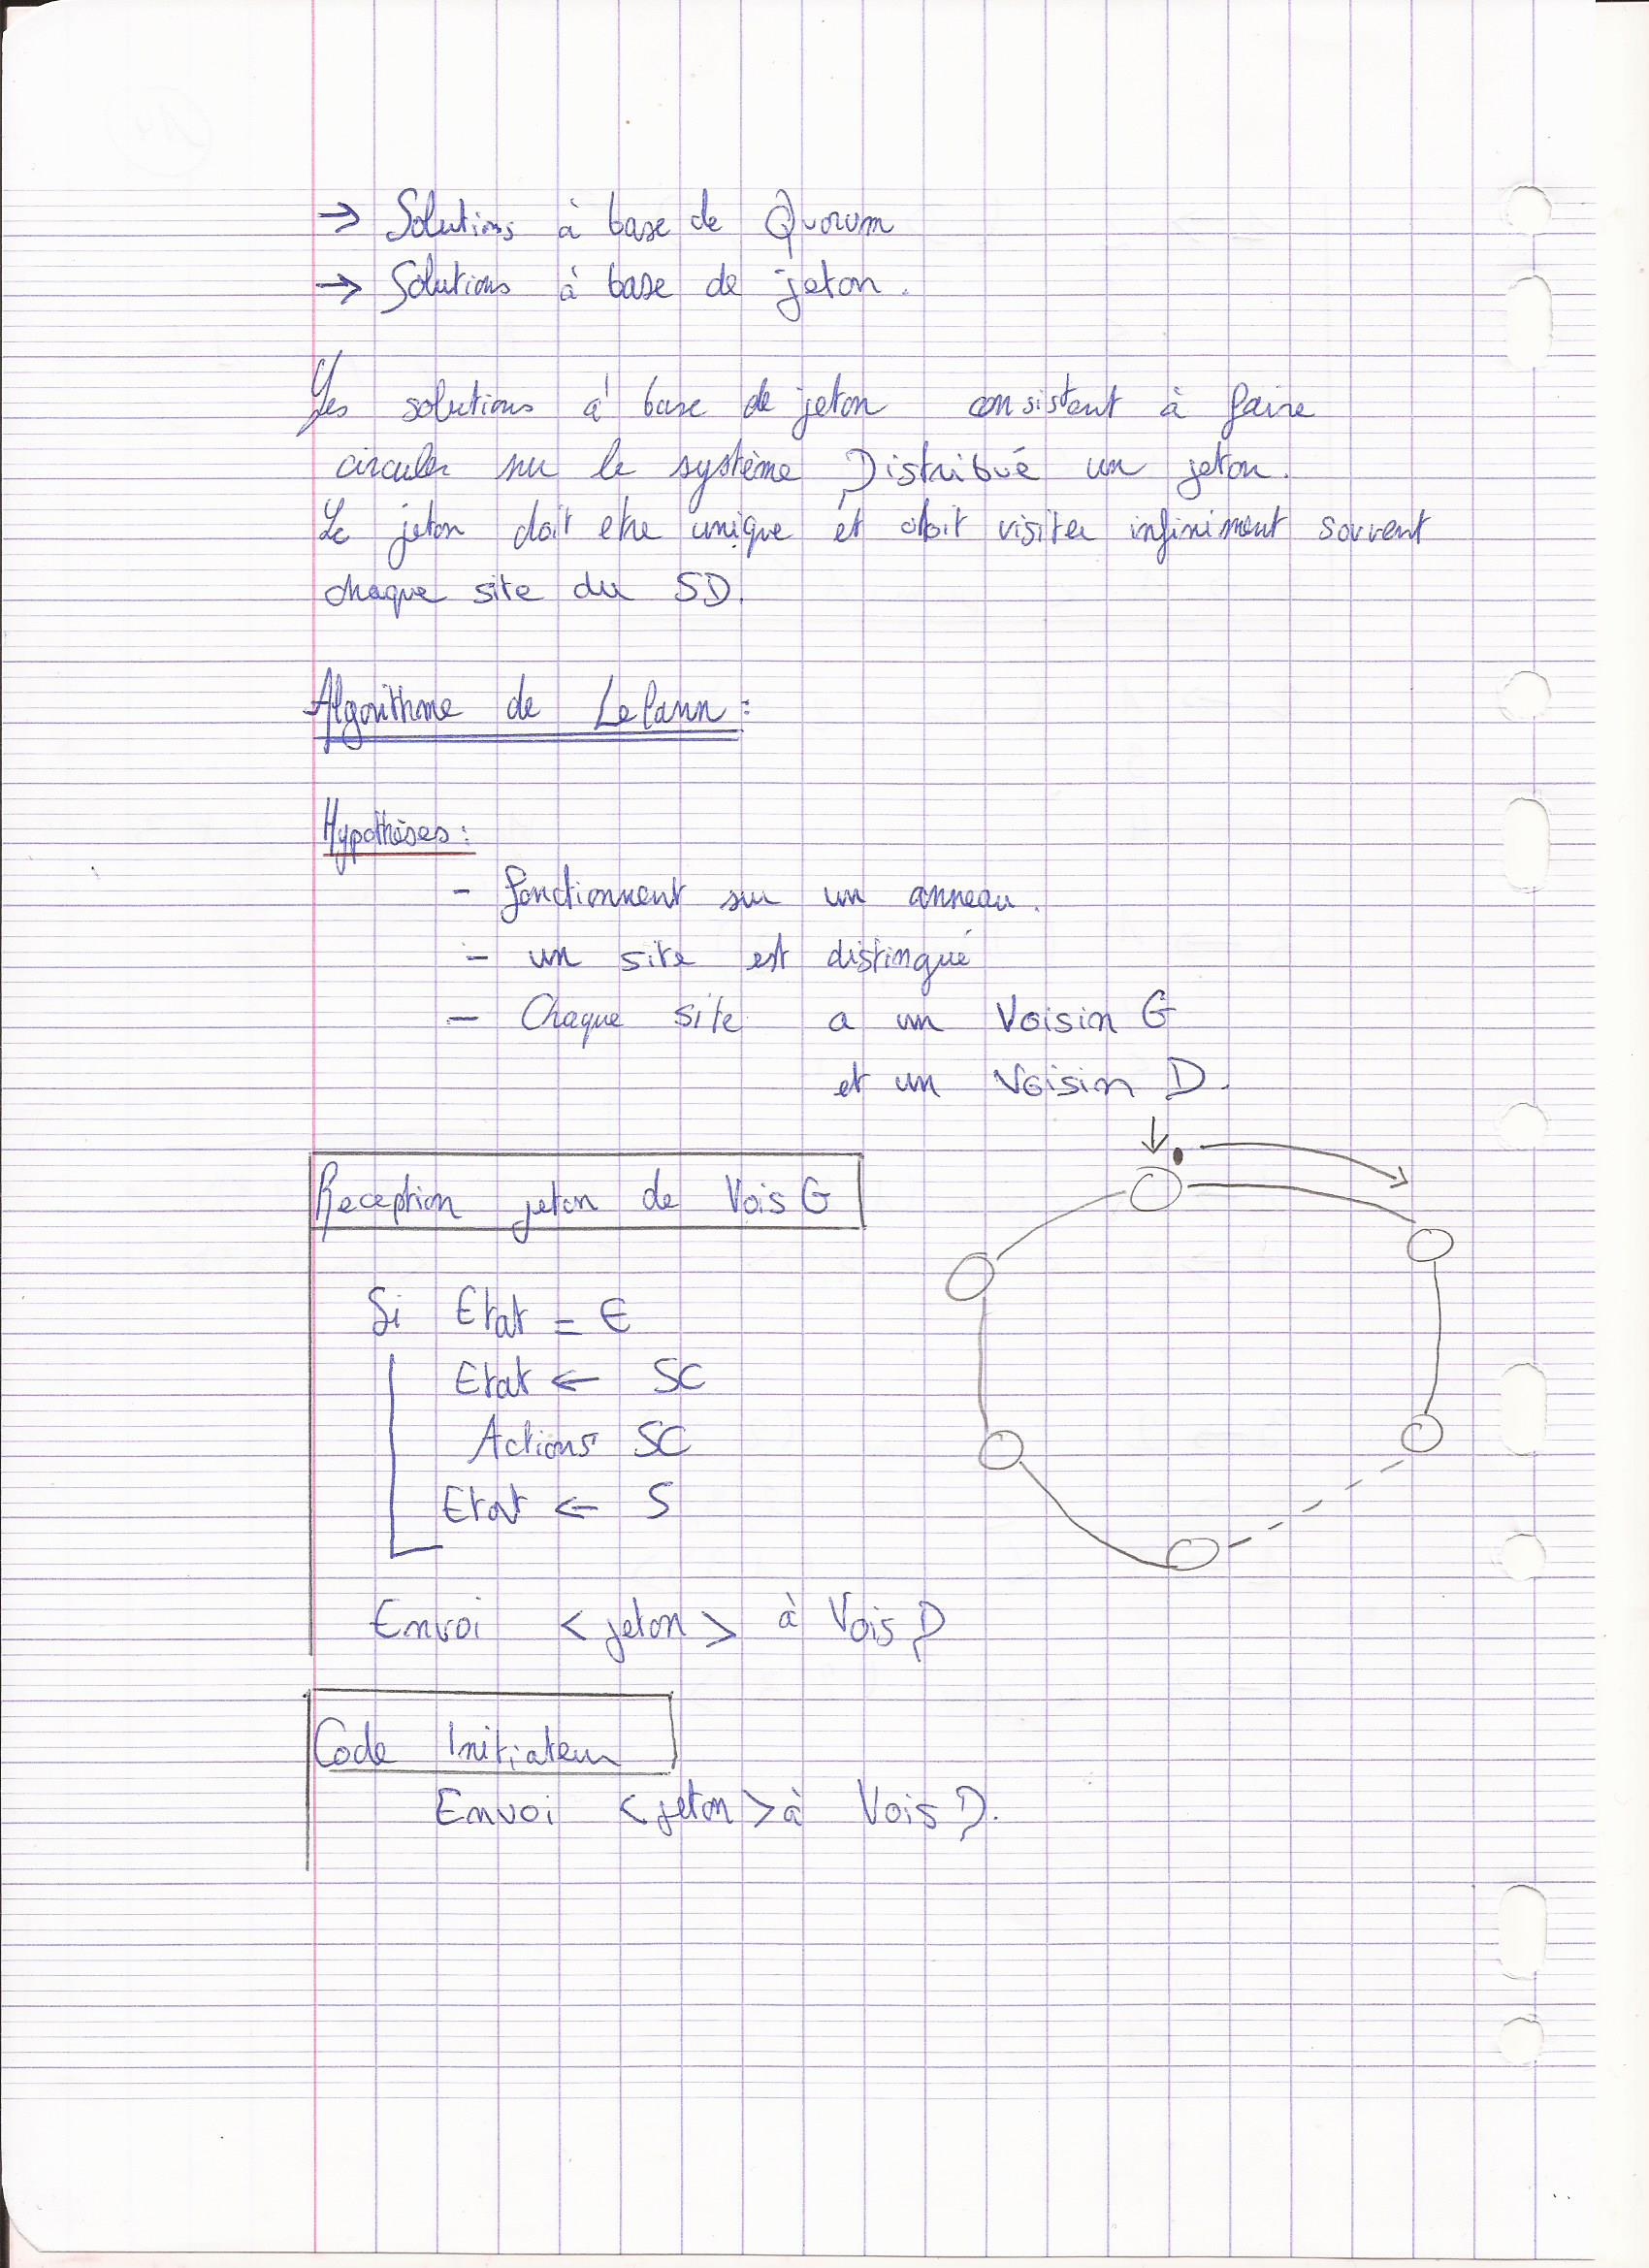 → Solutions à base de Quorum
→ Solutions à base de jeton.
Les solutions à base de jeton consistent à faire
circuler sur le système Distribué un jeton.
Le jeton doit etre unique et doit visiter infiniment souvent
chaque site du SD.
Algorithme de Lelann :
Hypothèses :
- fonctionnent sur un anneau.
- un site est distingué
- Chaque site a un Voisin G
et un Voisin D.
Reception jeton de Vois G
Si Etat = E
Etat ← SC
Actions SC
Etat ← S
Envoi < jeton > à Vois D
Code Initiateur
Envoi < jeton > à Vois D.